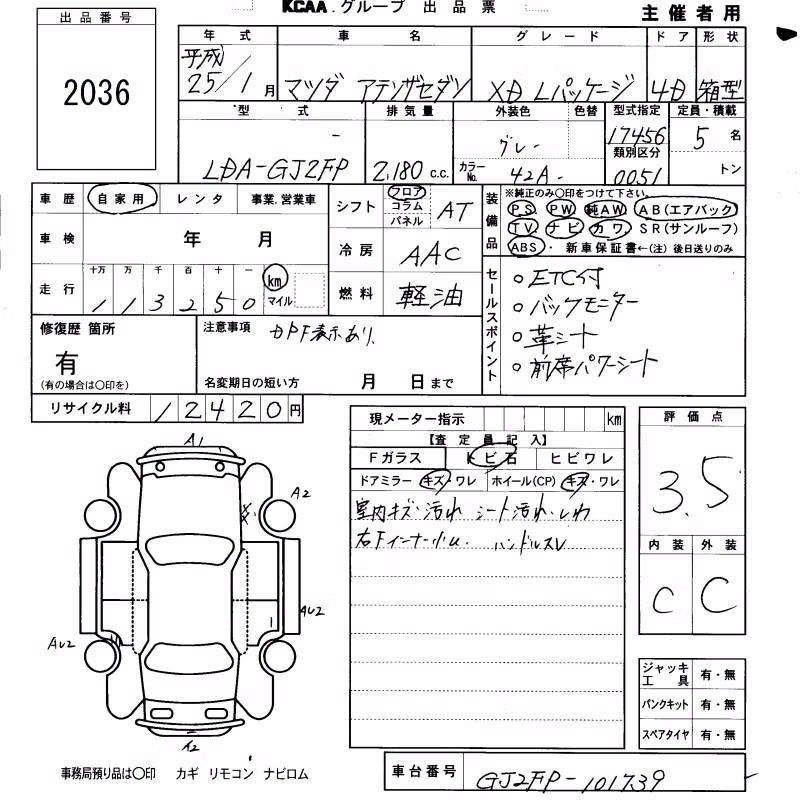 KCAA.グループ 出品票
主催者用
出品番号
2036
年式 車名 グレード ドア 形状
平成 25/1月 マツダ アテンザセダン XD Lパッケージ 4D 箱型
型式 排気量 外装色 色替 型式指定 定員・積載
LDA-GJ2FP 2,180 c.c. グレー 17456 5名
カラーNo. 42A- 類別区分 0051 トン
車歴 自家用 レンタ 事業.営業車
車検 年 月
走行 十万 万 千 百 十 一
113250 km マイル
シフト フロア コラム パネル AT
冷房 AAC
燃料 軽油
装備品 ※純正のみ○印をつけて下さい。
PS PW 純AW AB(エアバック)
TV ナビ カワ SR(サンルーフ)
ABS・ 新車保証書←(注)後日送りのみ
セールスポイント
○ETC付
○バックモニター
○革シート
○前席パワーシート
修復歴 箇所
有
(有の場合は○印を)
注意事項 DPF表示あり.
名変期日の短い方 月 日まで
リサイクル料 12420円
現メーター指示 km
【査定員記入】
Fガラス トビ石 ヒビワレ
ドアミラー キズ・ワレ ホイール(CP) キズ・ワレ
室内キズ・汚れ シート汚れ・しわ
右Fインナー小U. ハンドルスレ
評価点
3.5
内装 外装
C C
A1
A2
AU2
AU2
ジャッキ工具 有・無
パンクキット 有・無
スペアタイヤ 有・無
事務局預り品は○印 カギ リモコン ナビロム
車台番号 GJ2FP-101739